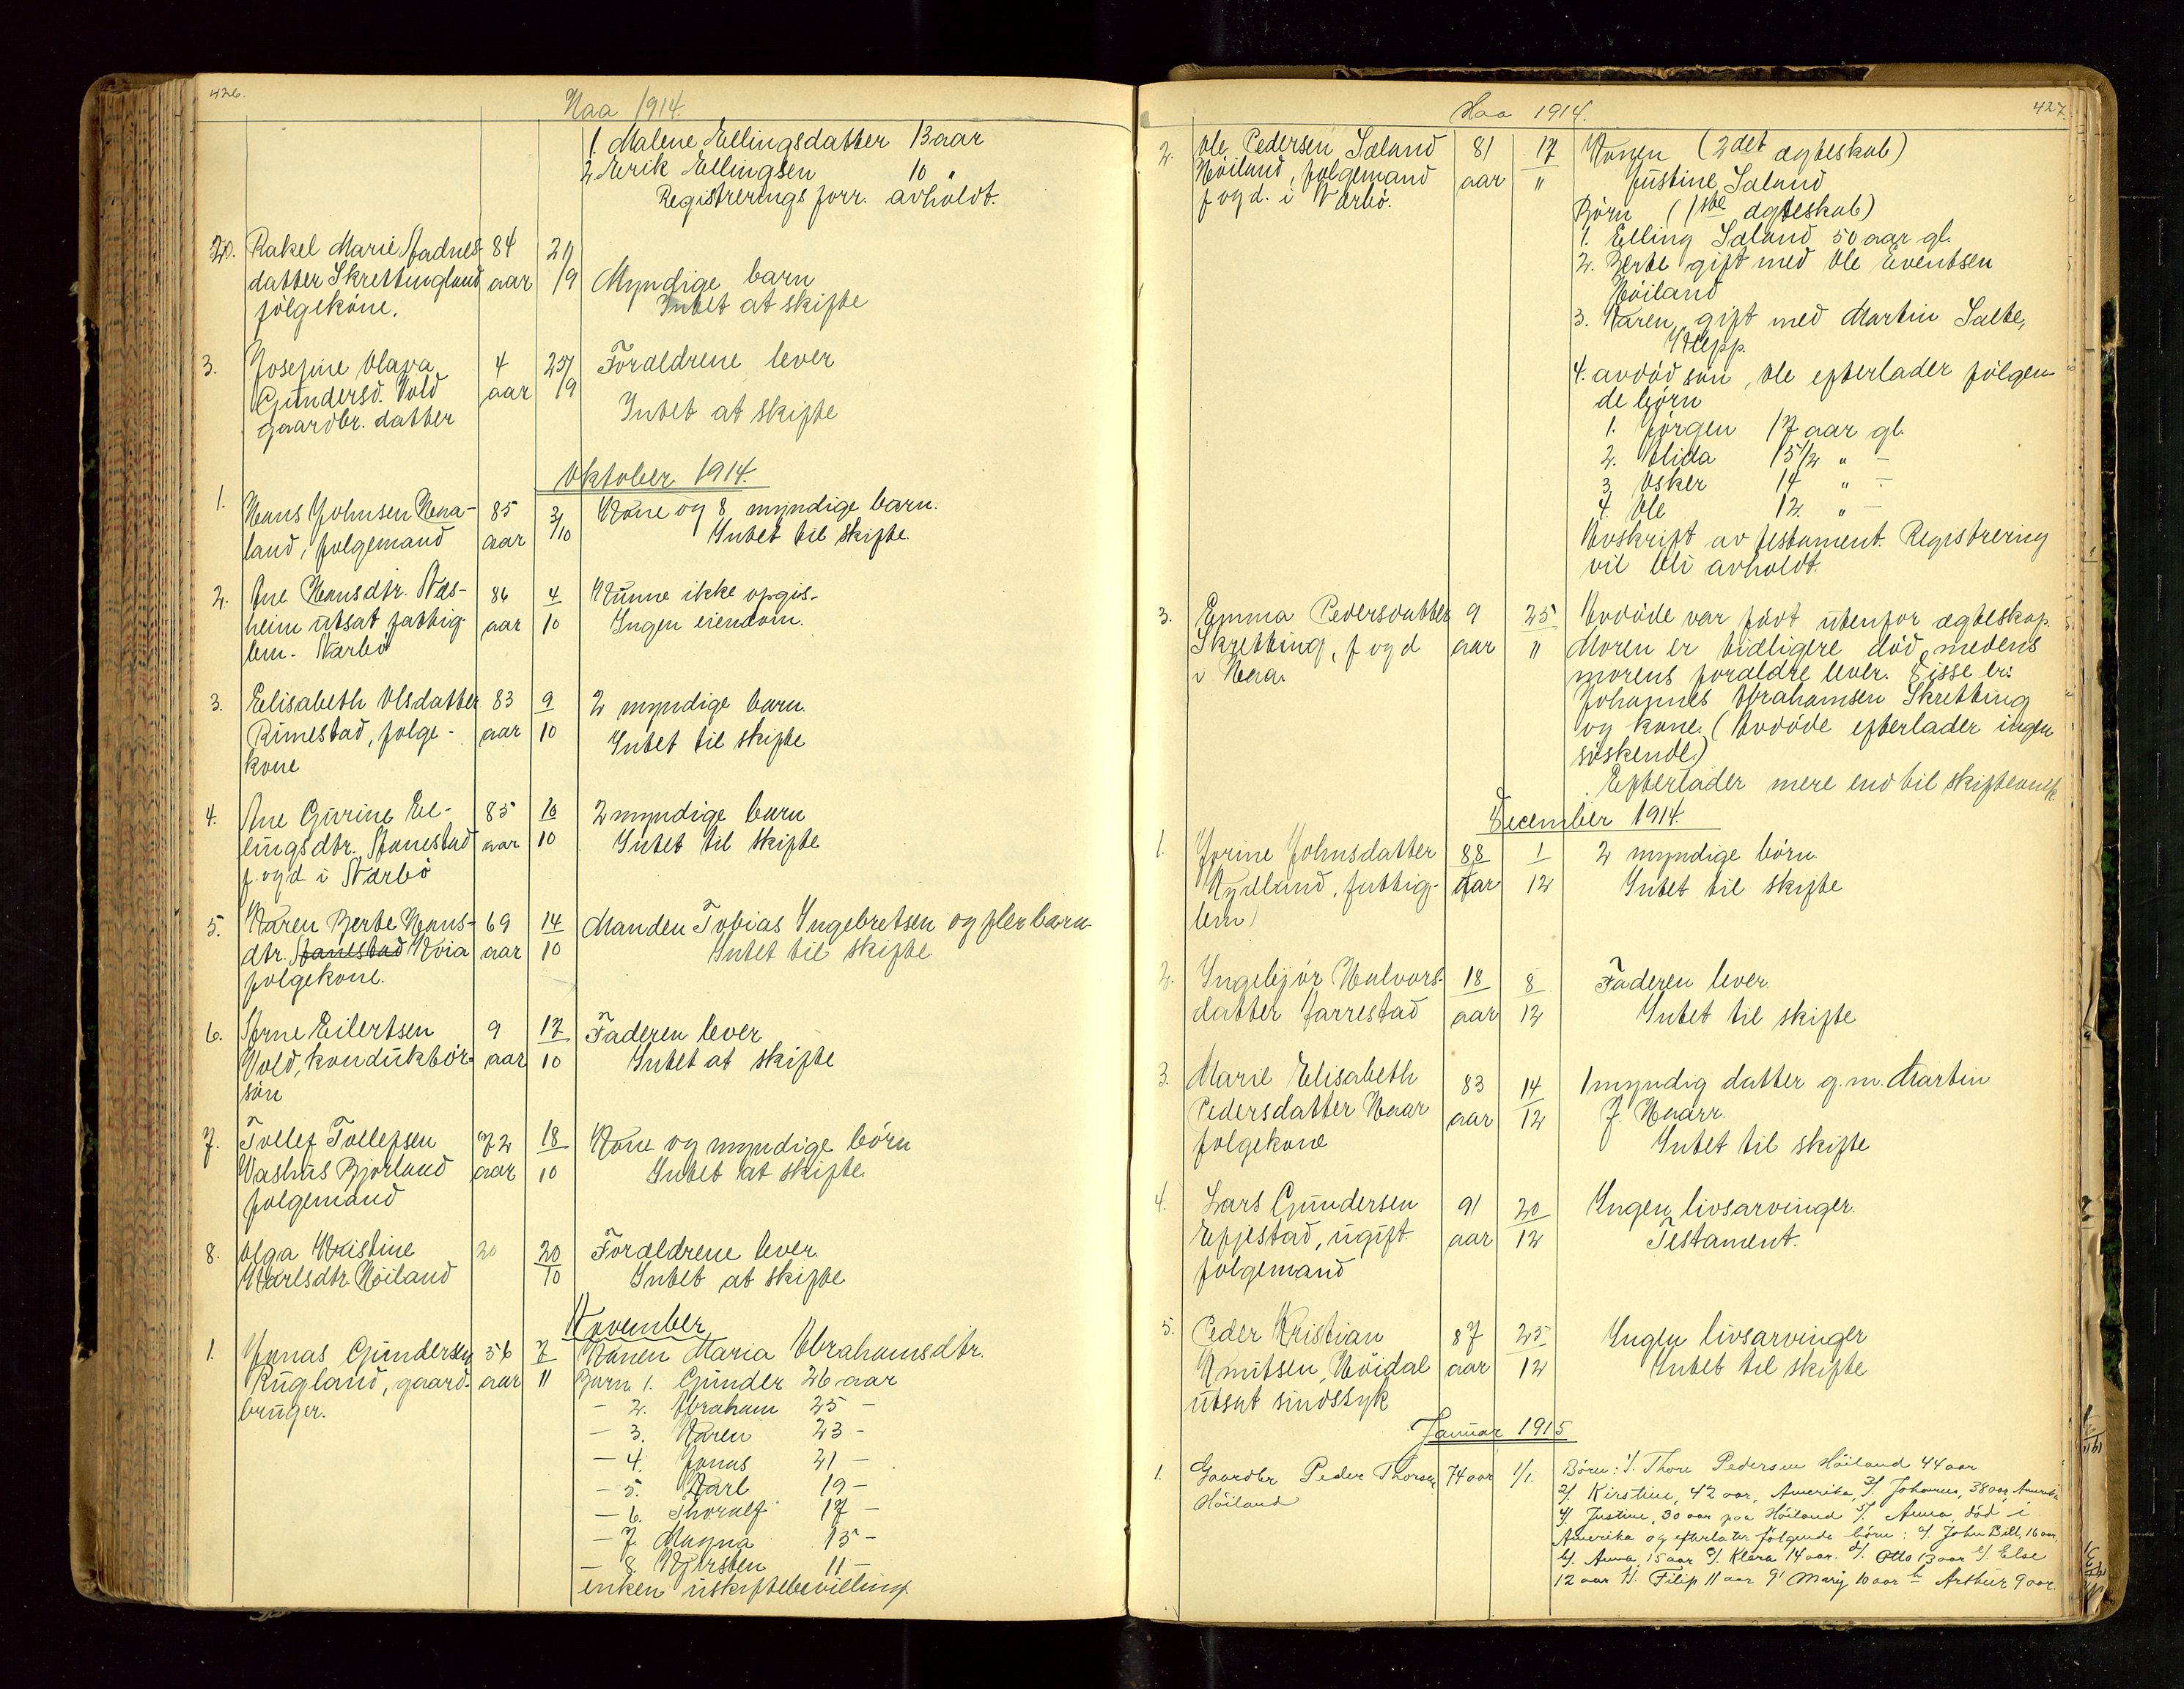 426.
Haa 1914.
1. Malene Ellingsdatter 13 aar
2. Erik Ellingsen 10 "
Registrerings forr. avholdt.
2. Rakel Marie Stadnes- 84 21/
datter Skrettingland aar /9 Myndige barn
følgekone. Intet at skifte
3. Josefine Olava 4 25/ Forældrene lever
Gundersd. Vold aar /9
gaardbr. datter Intet at skifte
Oktober 1914.
1. Hans Johnsen Haa- 85 3/10 Kone og 8 myndige barn.
land, følgemand aar Intet til skifte.
2. Ane Hansdtr. Næs- 86 4 Kunne ikke opgis.
heim utsat fattig- aar 10 Ingen eiendom.
lem. Nærbö
3. Elisabeth Olsdatter 83 9 2 myndige barn.
Rimestad, følge- aar 10 Intet til skifte
kone
4. Ane Gurine El- 85 10 2 myndige barn
lingsdtr. Stanestad aar 10 Intet til skifte
f. og d. i Nærbö
5. Karen Berte Hans- 69 14 Manden Tobias Ingebretsen og fler barn.
dtr. Stanestad Kvia aar 10 Intet til skifte
følgekone.
6. Arne Eilertsen 9 17 Faderen lever
Vold, konduktør- aar 10 Intet at skifte
søn
7. Tollef Tollefsen 72 18 Kone og myndige börn
Vashus Bjorland aar 10 Intet at skifte.
følgemand
8. Olga Kristine 20 20 Forældrene lever.
Karlsdtr. Höiland 10 Intet at skifte
November
1. Jonas Gundersen 56 7 Konen Maria Abrahamsdtr.
Rugland, gaard- aar 11 Barn 1. Gunder 26 aar
bruger. – 2. Abraham 25 –
– 3. Karen 23 –
– 4. Jonas 21 –
– 5. Karl 19 –
– 6. Thoralf 17 –
– 7. Magna 15 –
– 8. Kjersten 11 –
enken uskiftebevilling.
Haa 1914. 427.
2. Ole Pedersen Sæland 81 17 Konen (2det ægteskab)
Höiland, følgemand aar 11 Justine Sæland
f og d. i Nærbö. Börn (1ste ægteskab)
1. Elling Sæland 50 aar gl.
2. Berte gift med Ole Eventsen
Höiland
3. Karen, gift med Martin Salte,
Klepp.
4. avdöd sön, Ole efterlader følgen-
de börn
1. Jörgen 17 aar gl.
2. Olida 15 1/2 " –
3. Osker 14 " –
4. Ole 12 " –
Avskrift av testament. Registrering
vil bli avholdt.
3. Emma Pedersdatter 9 25 Avdöde var födt utenfor ægteskap.
Skretting, f og d aar 11 Moren er tidligere död, medens
i Haa. morens forældre lever. Disse er:
Johannes Abrahamsen Skretting
og kone. (Avdöde efterlader ingen
söskende.)
Efterlader mere end til skifteomk.
December 1914.
1. Jorine Johnsdatter 88 1 2 myndige börn.
Kydland, fattig- aar 12 Intet til skifte
lem
2. Ingebjör Halvors- 18 8 Faderen lever.
datter Varrestad aar 12 Intet til skifte
3. Marie Elisabeth 83 14 1 myndig datter g. m. Martin
Pedersdatter Haar aar 12 J. Haarr.
følgekone Intet til skifte
4. Lars Gundersen 91 20 Ingen livsarvinger.
Epjestad, ugift aar 12 Testament.
følgemand
5. Peder Kristian 87 25 Ingen livsarvinger
Knutsen, Höidal aar 12 Intet til skifte
utsat sindssyk
Januar 1915
1. Gaardbr Peder Thorsen 74 aar 1/1. Börn: 1/. Thore Pedersen Höiland 44 aar
Höiland 2/. Kirstine, 42 aar, Amerika, 3/. Johannes, 38 aar, Amerika
4/. Justine, 30 aar paa Höiland 5/. Anna, död i
Amerika og efterlater følgende börn: a/. John Bill, 16 aar,
b/. Anna, 15 aar c/. Klara 14 aar. d/. Otto 13 aar e/. Else
12 aar f/. Filip 11 aar g/ Mary 10 aar h Arthur 9 aar.